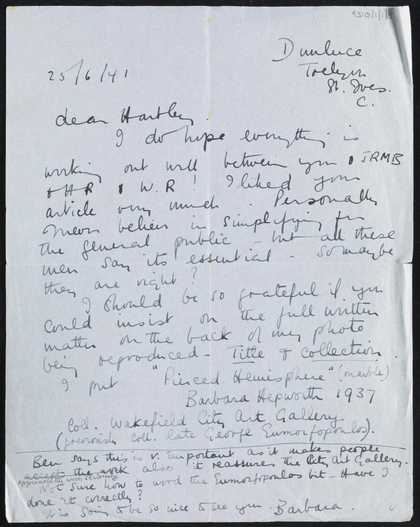 Dunluce
Trelyon
St. Ives.
C.
25/6/41
dear Hartley
I do hope everything is
working out well between you & JRMB
& HR & W.R! I liked your
article very much. Personally
I never believe in simplifying for
the general public - but all these
men say its essential. So maybe
they are right?
I should be so grateful if you
could insist on the full written
matter on the back of my photo
being reproduced - Title & collection.
I put "Pierced Hemisphere" (marble)
Barbara Hepworth 1937
Coll. Wakefield City Art Gallery
(previously coll. late George Eumorfopoulos).
Ben says this is v. important as it makes people
the work also it reassures the City Art Gallery.
Not sure how to word the Eumorfopoulos bit - Have I
done it correctly?
It is going to be so nice to see you. Barbara.